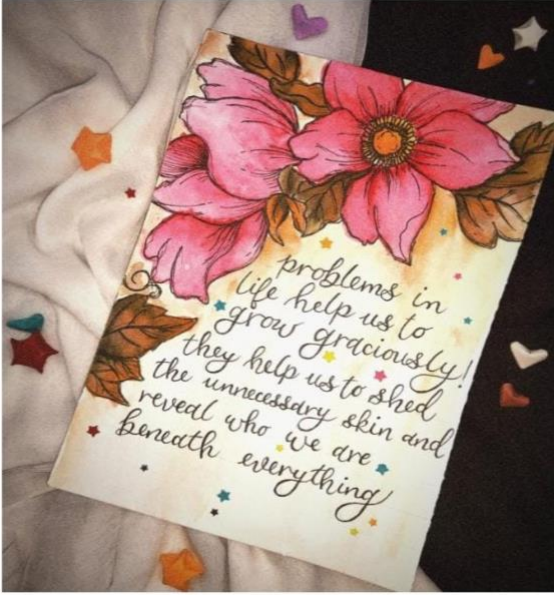 problems in
life help us to
grow graciously!
they help us to shed
the unnecessary skin and
reveal who we are
beneath everything